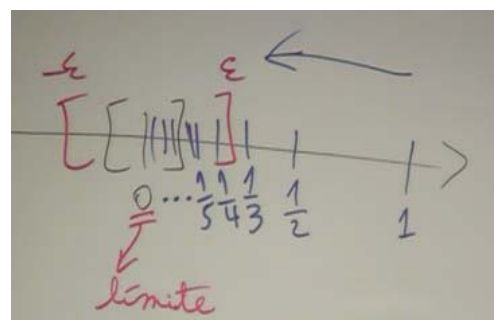 -ε ε
0 ... 1/5 1/4 1/3 1/2 1
límite